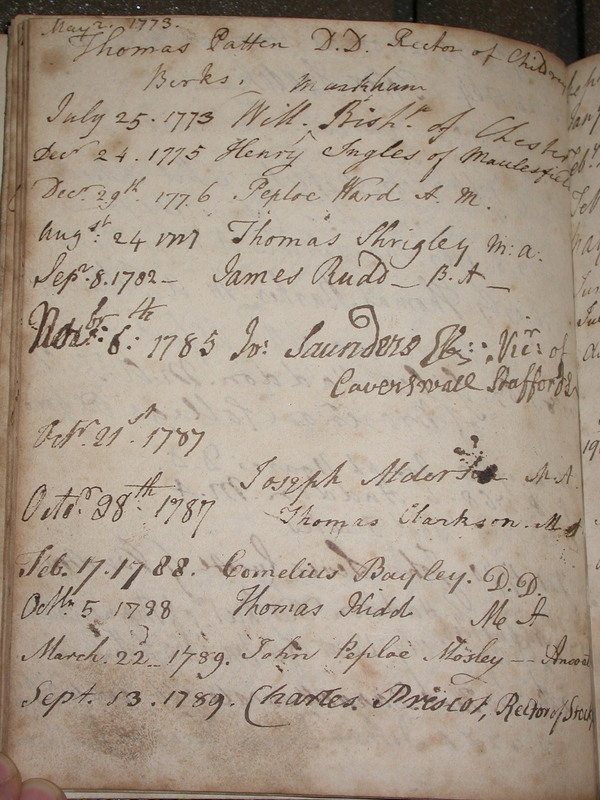 May 2. 1773.
Thomas Patten D.D. Rector of Childrey
Berks. Markham
July 25. 1773 Will. Bishp. of Chester
Decr 24. 1775 Henry Ingles of Maclesfield
Decr. 29th. 1776 Peploe Ward A. M.
Augst. 24 1777 Thomas Shrigley M: a.
Sepr. 8. 1782 — James Rudd — B. A —
Novbr. 6:th 1785 Jos: Saunders Vicr: of
Caverswall Stafford
Octr. 21st. 1787
Joseph Alderson M A
Octor. 28th 1787 Thomas Clarkson. M A
Feb. 17. 1788. Cornelius Bayley. D. D.
5 1788 Thomas Kidd M A
March. 22d. 1789. John Peploe Mosley —
Sept. 13. 1789. Charles Prescot, Rector of Stock